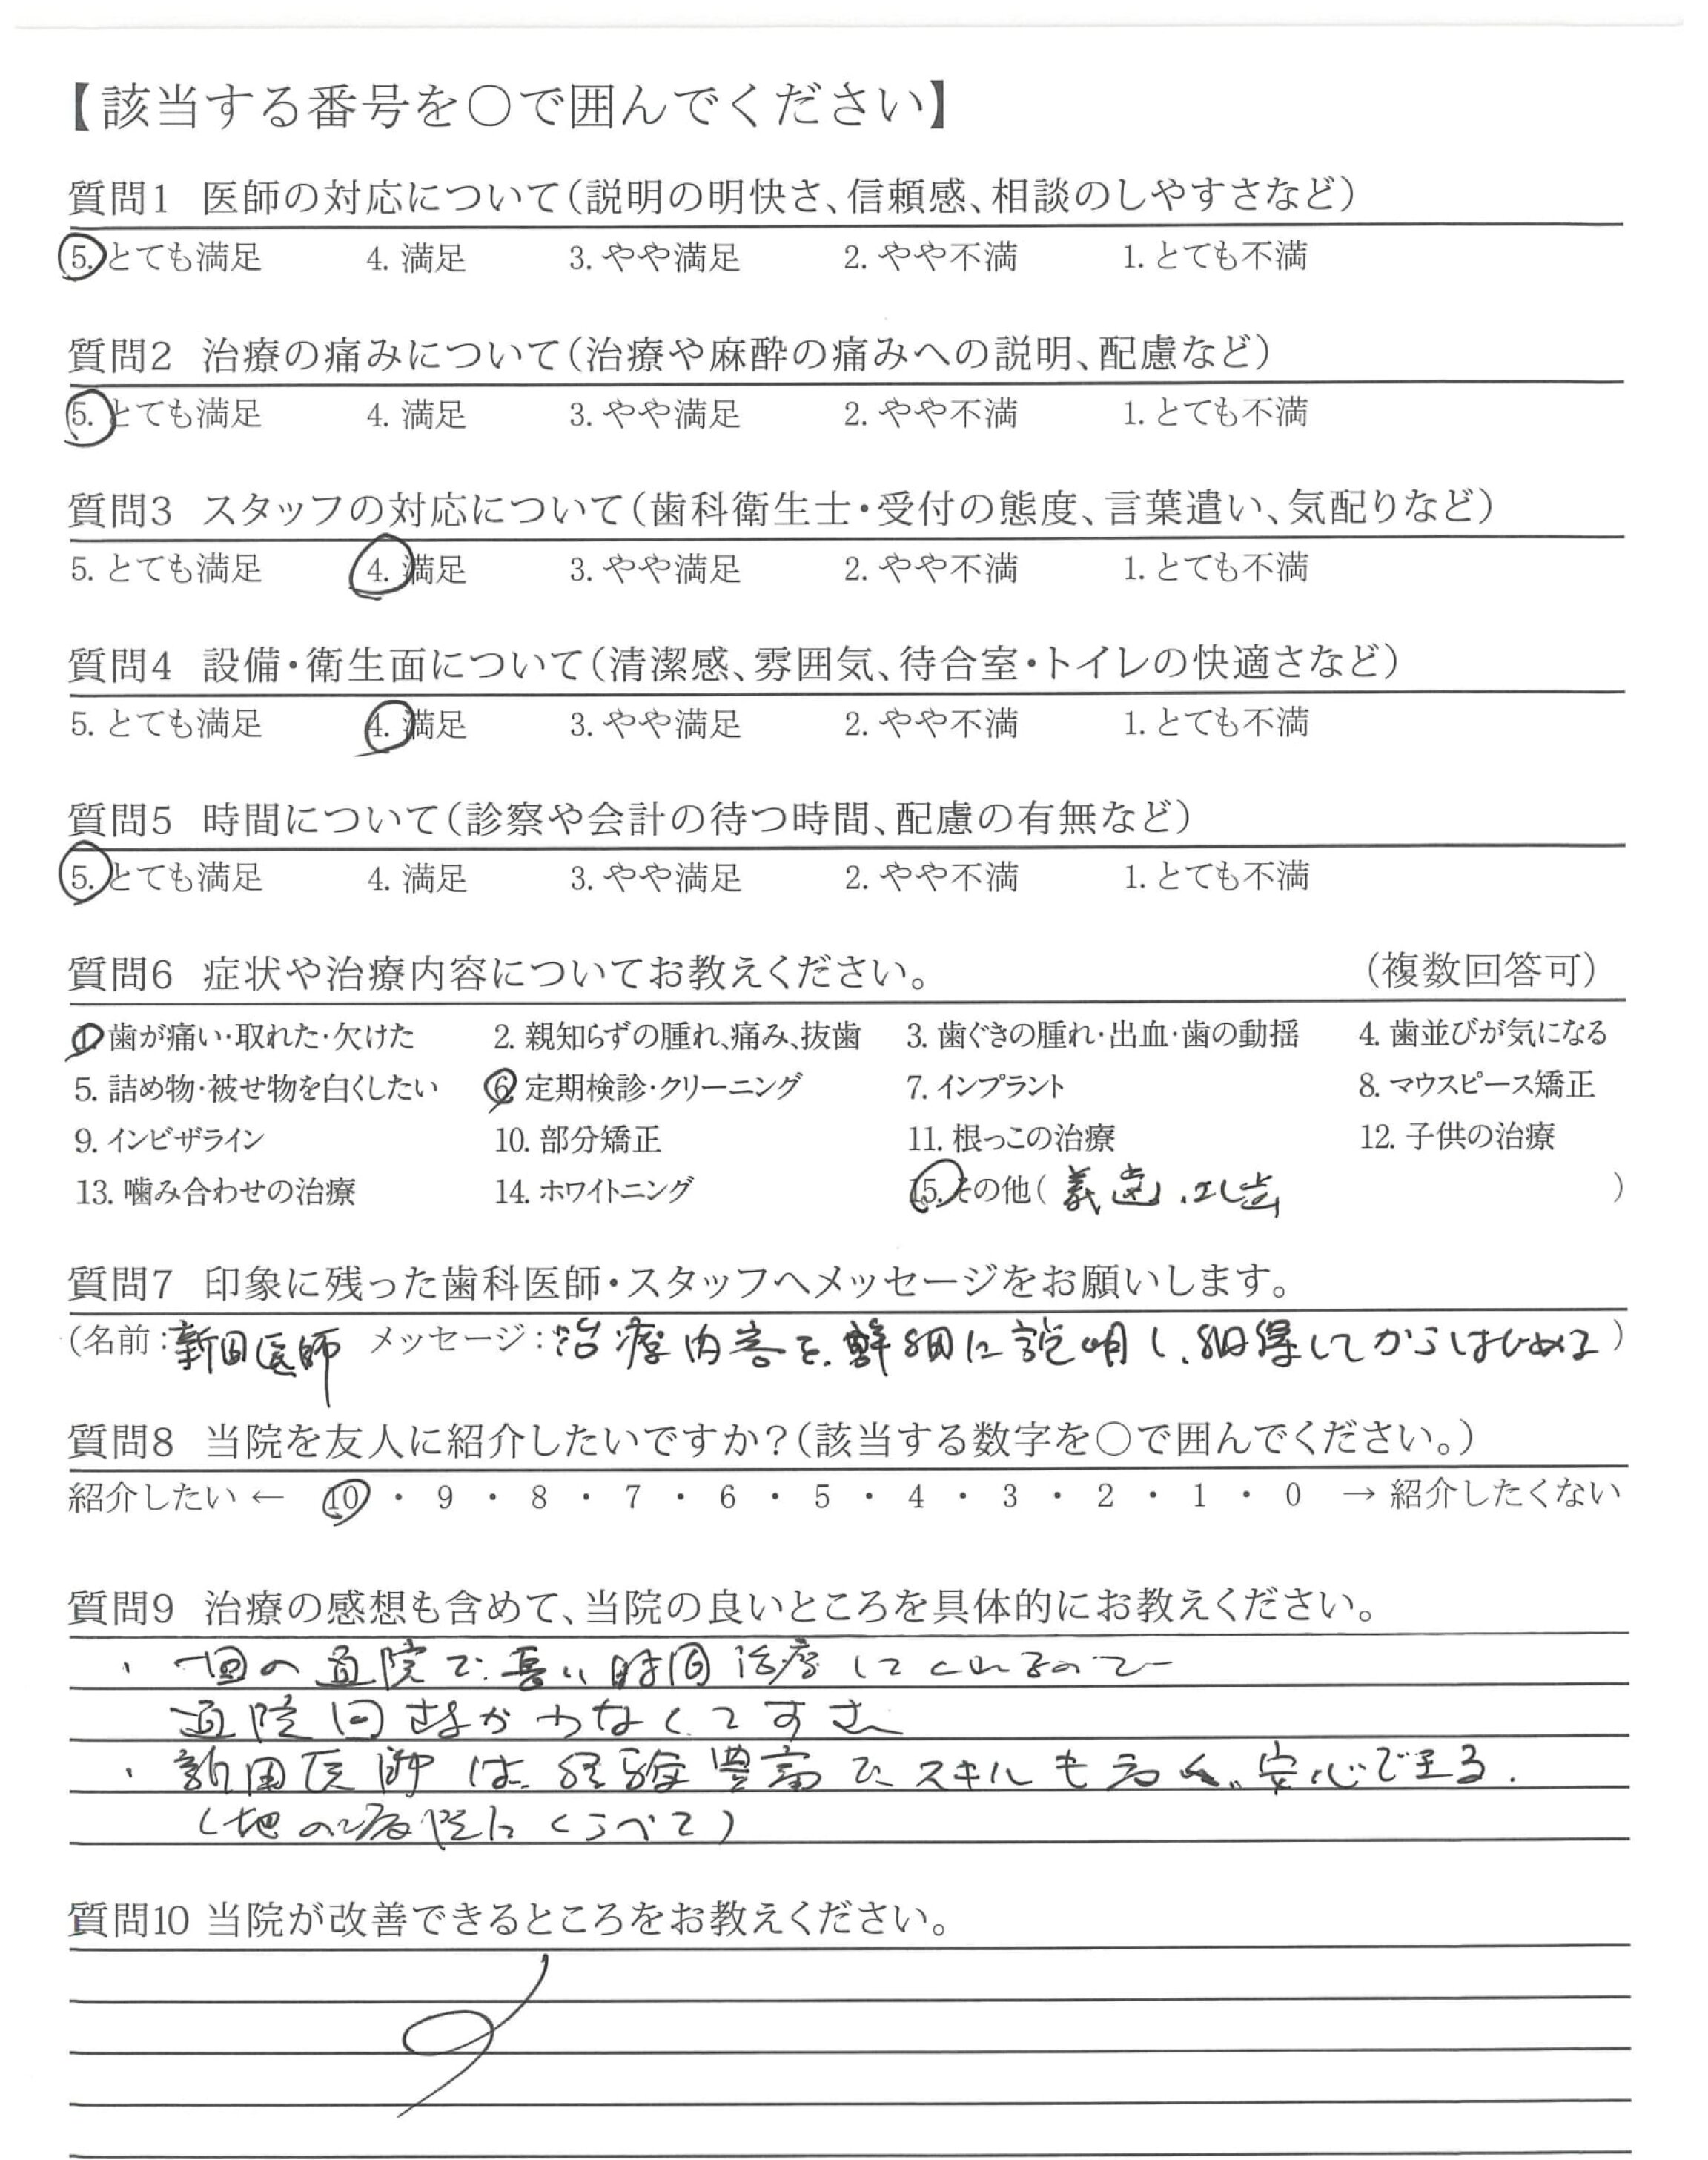 【該当する番号を○で囲んでください】
質問1 医師の対応について（説明の明快さ、信頼感、相談のしやすさなど）
5. とても満足 4. 満足 3. やや満足 2. やや不満 1. とても不満
質問2 治療の痛みについて（治療や麻酔の痛みへの説明、配慮など）
5. とても満足 4. 満足 3. やや満足 2. やや不満 1. とても不満
質問3 スタッフの対応について（歯科衛生士・受付の態度、言葉遣い、気配りなど）
5. とても満足 4. 満足 3. やや満足 2. やや不満 1. とても不満
質問4 設備・衛生面について（清潔感、雰囲気、待合室・トイレの快適さなど）
5. とても満足 4. 満足 3. やや満足 2. やや不満 1. とても不満
質問5 時間について（診察や会計の待つ時間、配慮の有無など）
5. とても満足 4. 満足 3. やや満足 2. やや不満 1. とても不満
質問6 症状や治療内容についてお教えください。 （複数回答可）
1. 歯が痛い・取れた・欠けた 2. 親知らずの腫れ、痛み、抜歯 3. 歯ぐきの腫れ・出血・歯の動揺 4. 歯並びが気になる
5. 詰め物・被せ物を白くしたい 6. 定期検診・クリーニング 7. インプラント 8. マウスピース矯正
9. インビザライン 10. 部分矯正 11. 根っこの治療 12. 子供の治療
13. 噛み合わせの治療 14. ホワイトニング 15. その他（ 義歯、 ）
質問7 印象に残った歯科医師・スタッフへメッセージをお願いします。
（名前：新田医師 メッセージ：治療内容を、詳細に説明し、納得してからはじめる）
質問8 当院を友人に紹介したいですか？（該当する数字を○で囲んでください。）
紹介したい ← 10 ・ 9 ・ 8 ・ 7 ・ 6 ・ 5 ・ 4 ・ 3 ・ 2 ・ 1 ・ 0 → 紹介したくない
質問9 治療の感想も含めて、当院の良いところを具体的にお教えください。
・ 一回の通院で、長い時間治療してくれるので
通院回数が少なくてすむ
・ 新田医師は、経験豊富で、スキルも高く、安心できる.
（他の病院にくらべて）
質問10 当院が改善できるところをお教えください。